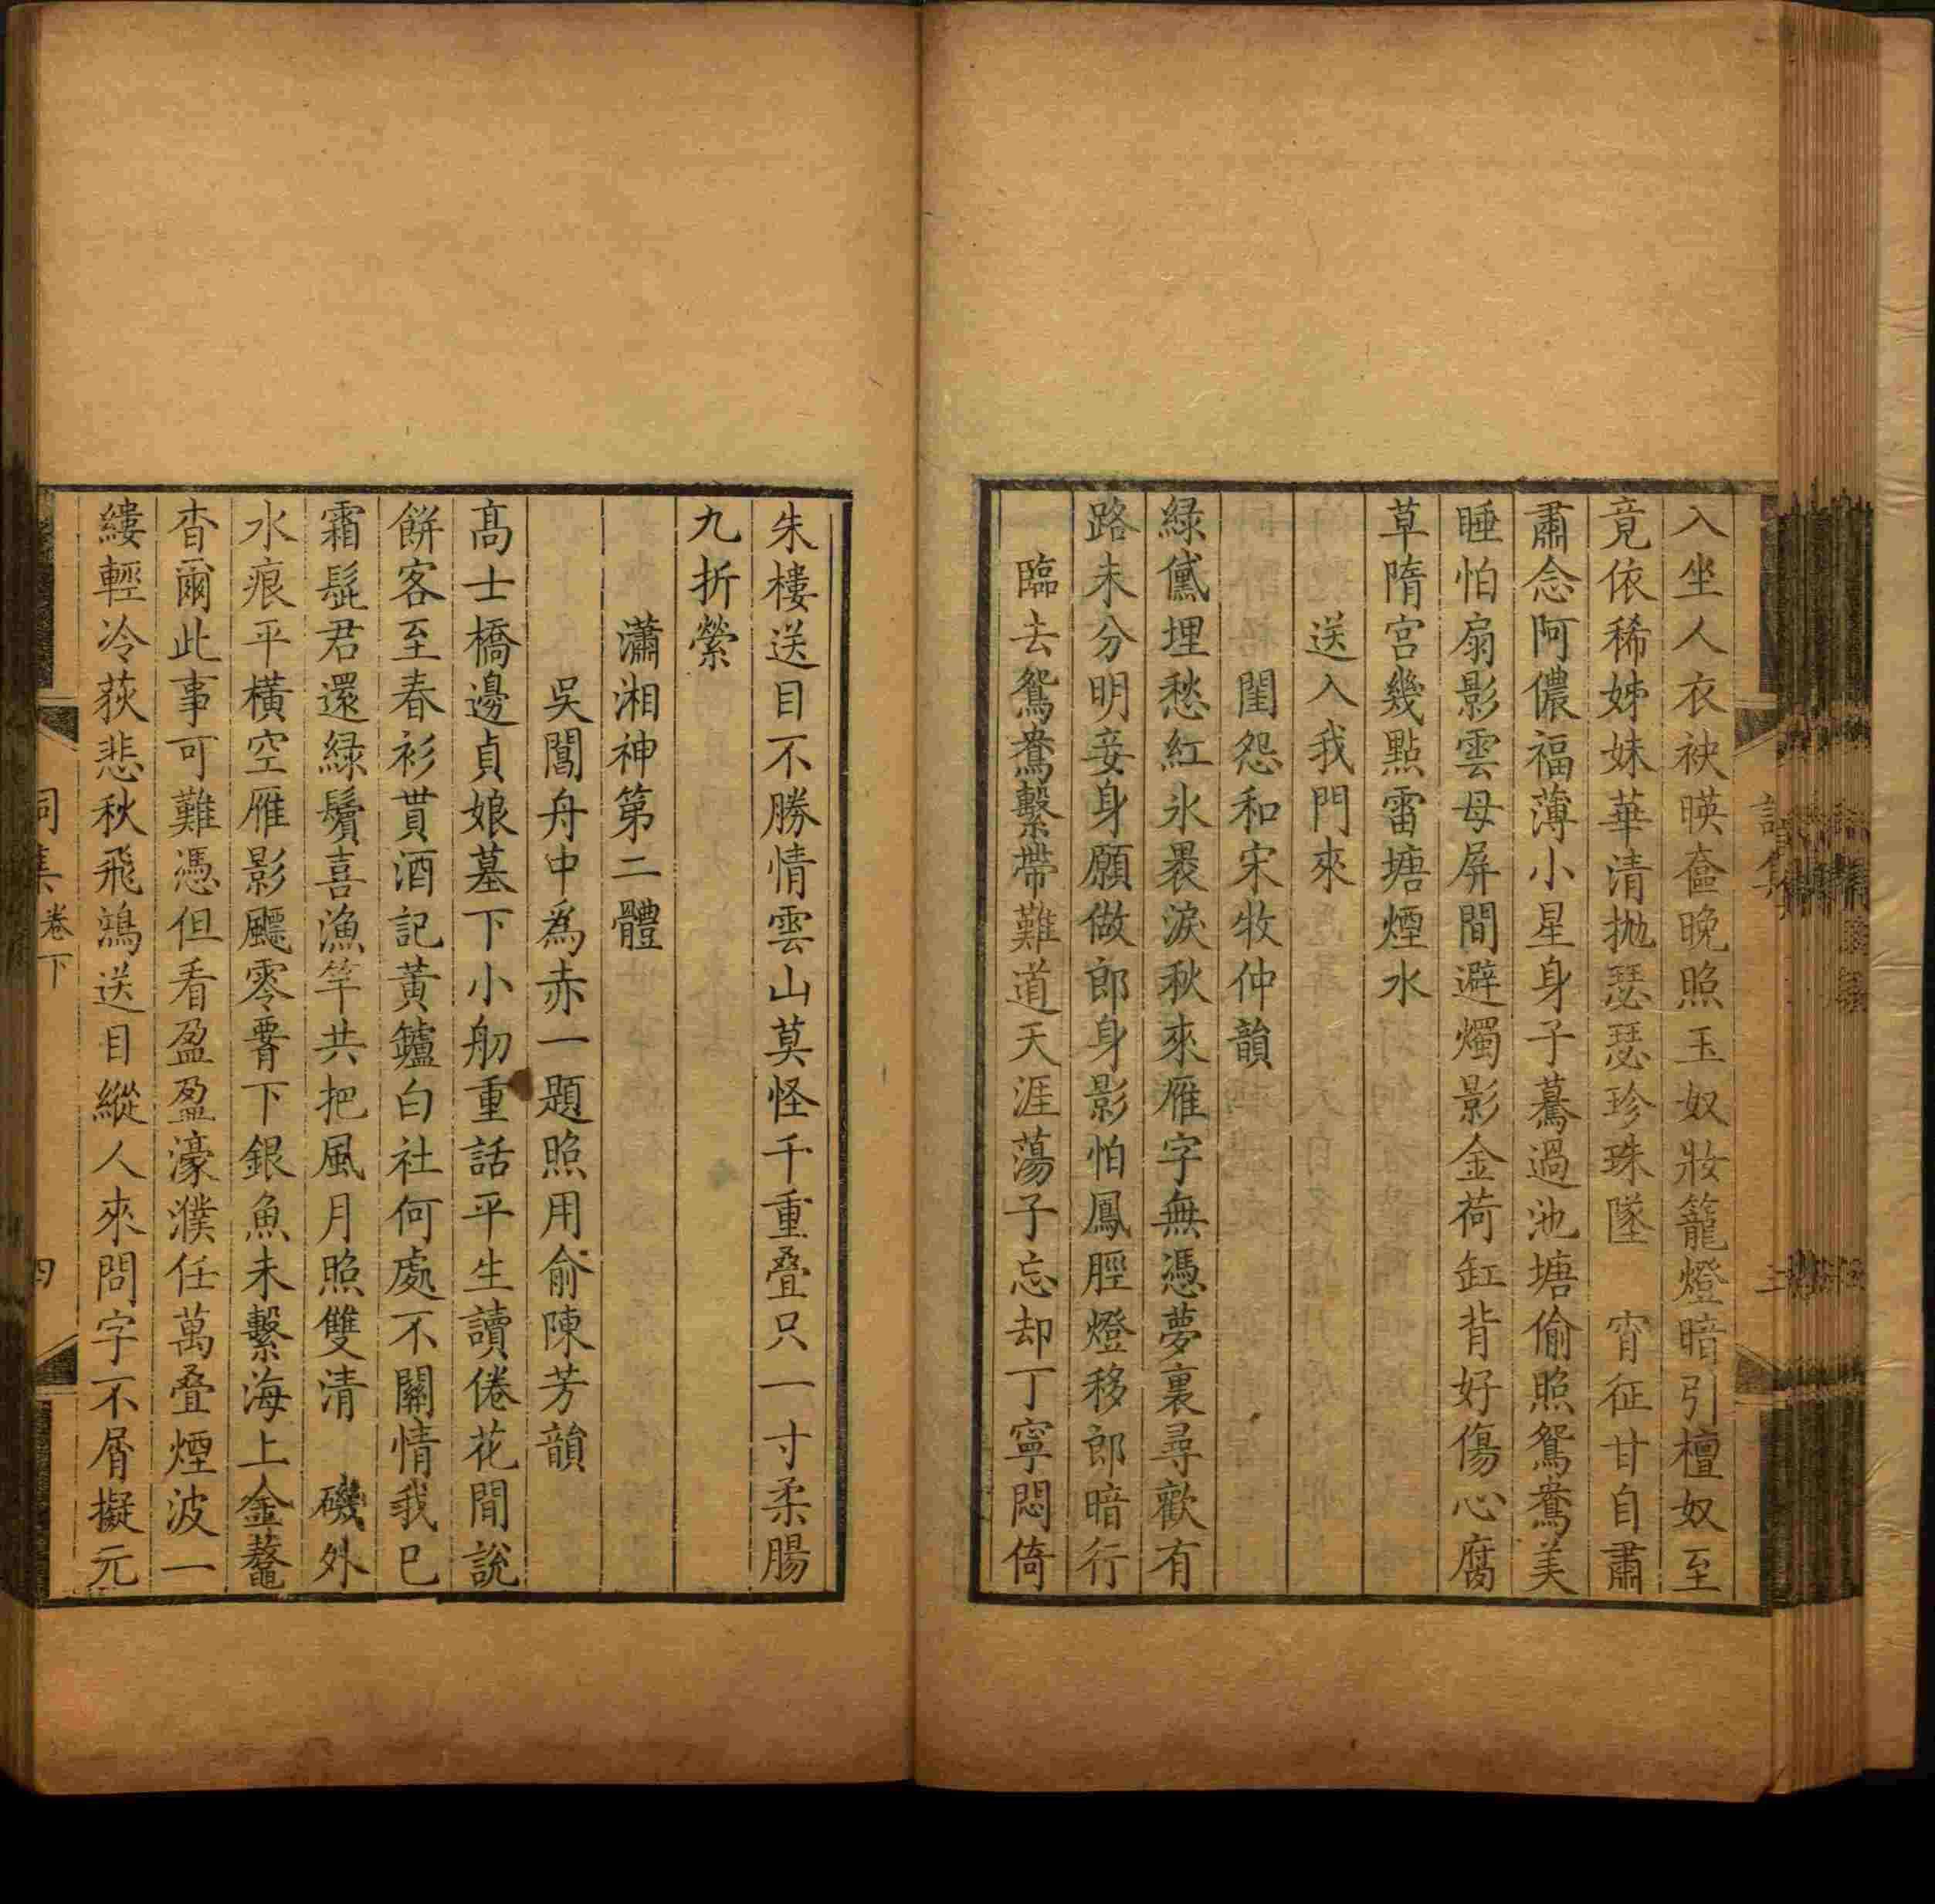 入坐人衣袂暎奩晚照玉奴妝籠燈暗引檀奴至
竟依稀姊妹華清拋瑟瑟珍珠墜　宵征甘自肅
肅念阿儂福薄小星身子驀過池塘偷照鴛鴦美
睡怕扇影雲母屏間避燭影金荷缸背好傷心腐
草隋宮幾點雷塘煙水
送入我門來
閨怨和宋牧仲韻
綠黛埋愁紅氷裛淚秋來雁字無憑夢裏尋歡有
路未分明妾身願做郎身影怕鳳脛燈移郎暗行
臨去鴛鴦繫帶難道天涯蕩子忘却丁寧悶倚
朱樓送目不勝情雲山莫怪千重疊只一寸柔腸
九折縈
瀟湘神第二體
吳閶舟中爲赤一題照用俞陳芳韻
高士橋邊貞娘墓下小舠重話平生讀倦花間說
餅客至春衫貰酒記黃鑪白社何處不關情我已
霜髭君還緑鬢喜漁竿共把風月照雙清　磯外
水痕平橫空雁影飂零霫下銀魚未繫海上金鼇
杳爾此事可難憑但看盈盈濠濮任萬叠煙波一
縷輕冷荻悲秋飛鴻送目縱人來問字不屑擬元
詞集 卷下
四